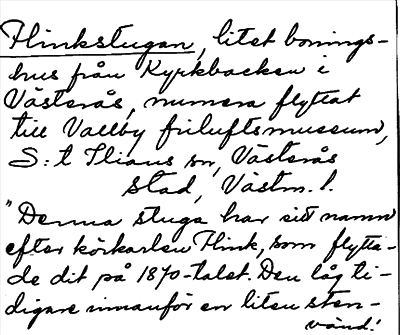 Flinkstugan, litet bonings-
hus från Kyrkbacken i
Västerås, numera flyttat
till Vallby friluftsmuseum,
S:t Ilians sn, Västerås
stad, Västm. l.
"Denna stuga har sitt namn
efter körkarlen Flink, som flytta-
de dit på 1870-talet. Den låg ti-
digare innanför en liten sten-
vänd.